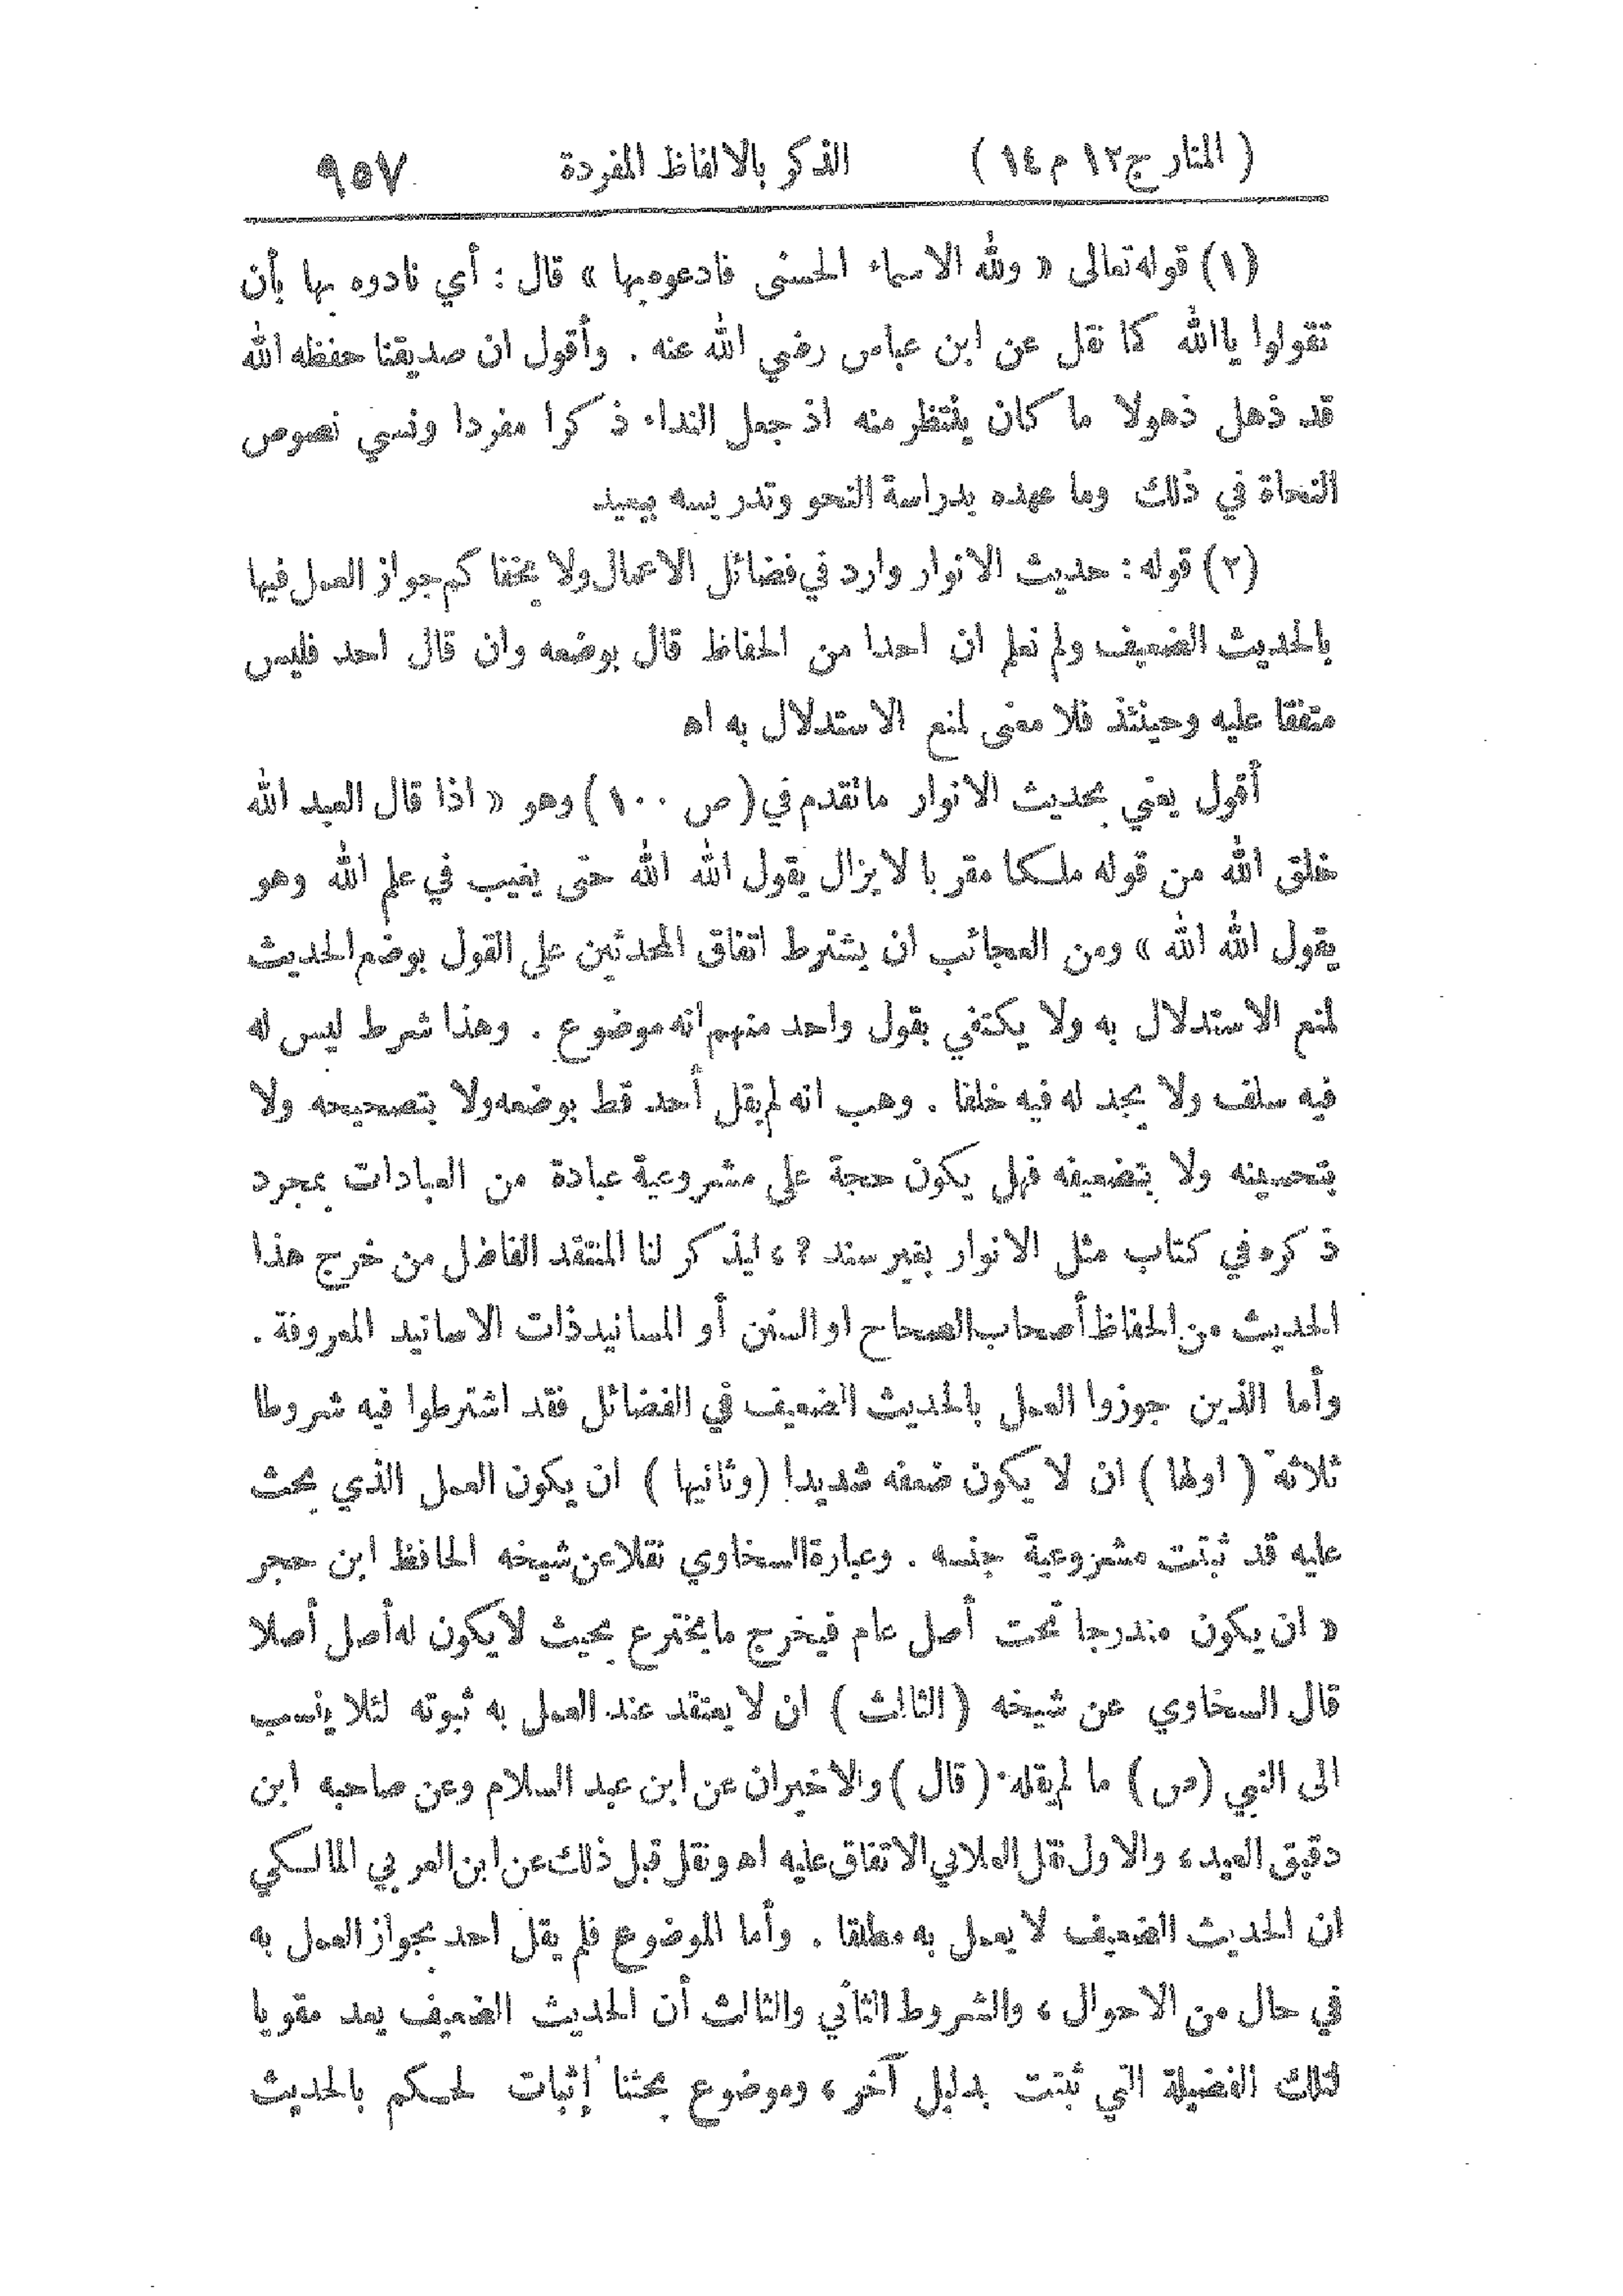 ( المنار ج ١٢ م ١٤ ) الذكر بالالفاظ المفردة ٩٥٧
(١) قوله تعالى « ولله الاسماء الحسنى فادعوه بها » قال : أي نادوه بها بأن
تقولوا ياالله كما نقل عن ابن عباس رضي الله عنه . وأقول ان صديقنا حفظه الله
قد ذهل ذهولا ما كان ينتظر منه اذ جعل النداء ذكرا مفردا ونسي نصوص
النحاة في ذلك وما عهده بدراسة النحو وتدريسه ببعيد
(٢) قوله : حديث الانوار وارد في فضائل الاعمال ولا يخفا كم جواز العمل فيها
بالحديث الضعيف ولم نعلم ان احدا من الحفاظ قال بوضعه وان قال احد فليس
متفقا عليه وحينئذ فلا معنى لمنع الاستدلال به اه
أقول يعني بحديث الانوار ماتقدم في (ص ١٠٠) وهو « اذا قال العبد الله
خلق الله من قوله ملكا مقربا لايزال يقول الله الله حتى يغيب في علم الله وهو
يقول الله الله » ومن العجائب ان يشترط اتفاق المحدثين على القول بوضع الحديث
لمنع الاستدلال به ولا يكتفي بقول واحد منهم انه موضوع . وهذا شرط ليس له
فيه سلف ولا يجد له فيه خلفا . وهب انه لم يقل أحد قط بوضعه ولا بتصحيحه ولا
بتحسينه ولا بتضعيفه فهل يكون حجة على مشروعية عبادة من العبادات بمجرد
ذكره في كتاب مثل الانوار بغير سند ? ، ليذكر لنا المنتقد الفاضل من خرج هذا
الحديث من الحفاظ أصحاب الصحاح او السنن أو المسانيد ذات الاسانيد المعروفة .
وأما الذين جوزوا العمل بالحديث الضعيف في الفضائل فقد اشترطوا فيه شروطا
ثلاثة ( اولها ) ان لا يكون ضعفه شديدا (وثانيها ) ان يكون العمل الذي يحث
عليه قد ثبتت مشروعية جنسه . وعبارة السخاوي نقلا عن شيخه الحافظ ابن حجر
« ان يكون مندرجا تحت أصل عام فيخرج مايخترع بحيث لايكون له أصل أصلا
قال السخاوي عن شيخه ( الثالث ) ان لا يعتقد عند العمل به ثبوته لئلا ينسب
الى النبي (ص) ما لم يقله ( قال ) والاخيران عن ابن عبد السلام وعن صاحبه ابن
دقيق العيد ، والاول نقل العلائي الاتفاق عليه اه ونقل قبل ذلك عن ابن العربي المالكي
ان الحديث الضعيف لا يعمل به مطلقا . وأما الموضوع فلم يقل احد بجواز العمل به
في حال من الاحوال ، والشروط الثاني والثالث أن الحديث الضعيف يعد مقويا
لتلك الفضيلة التي ثبتت بدليل آخر ، وموضوع بحثنا إثبات لحكم بالحديث